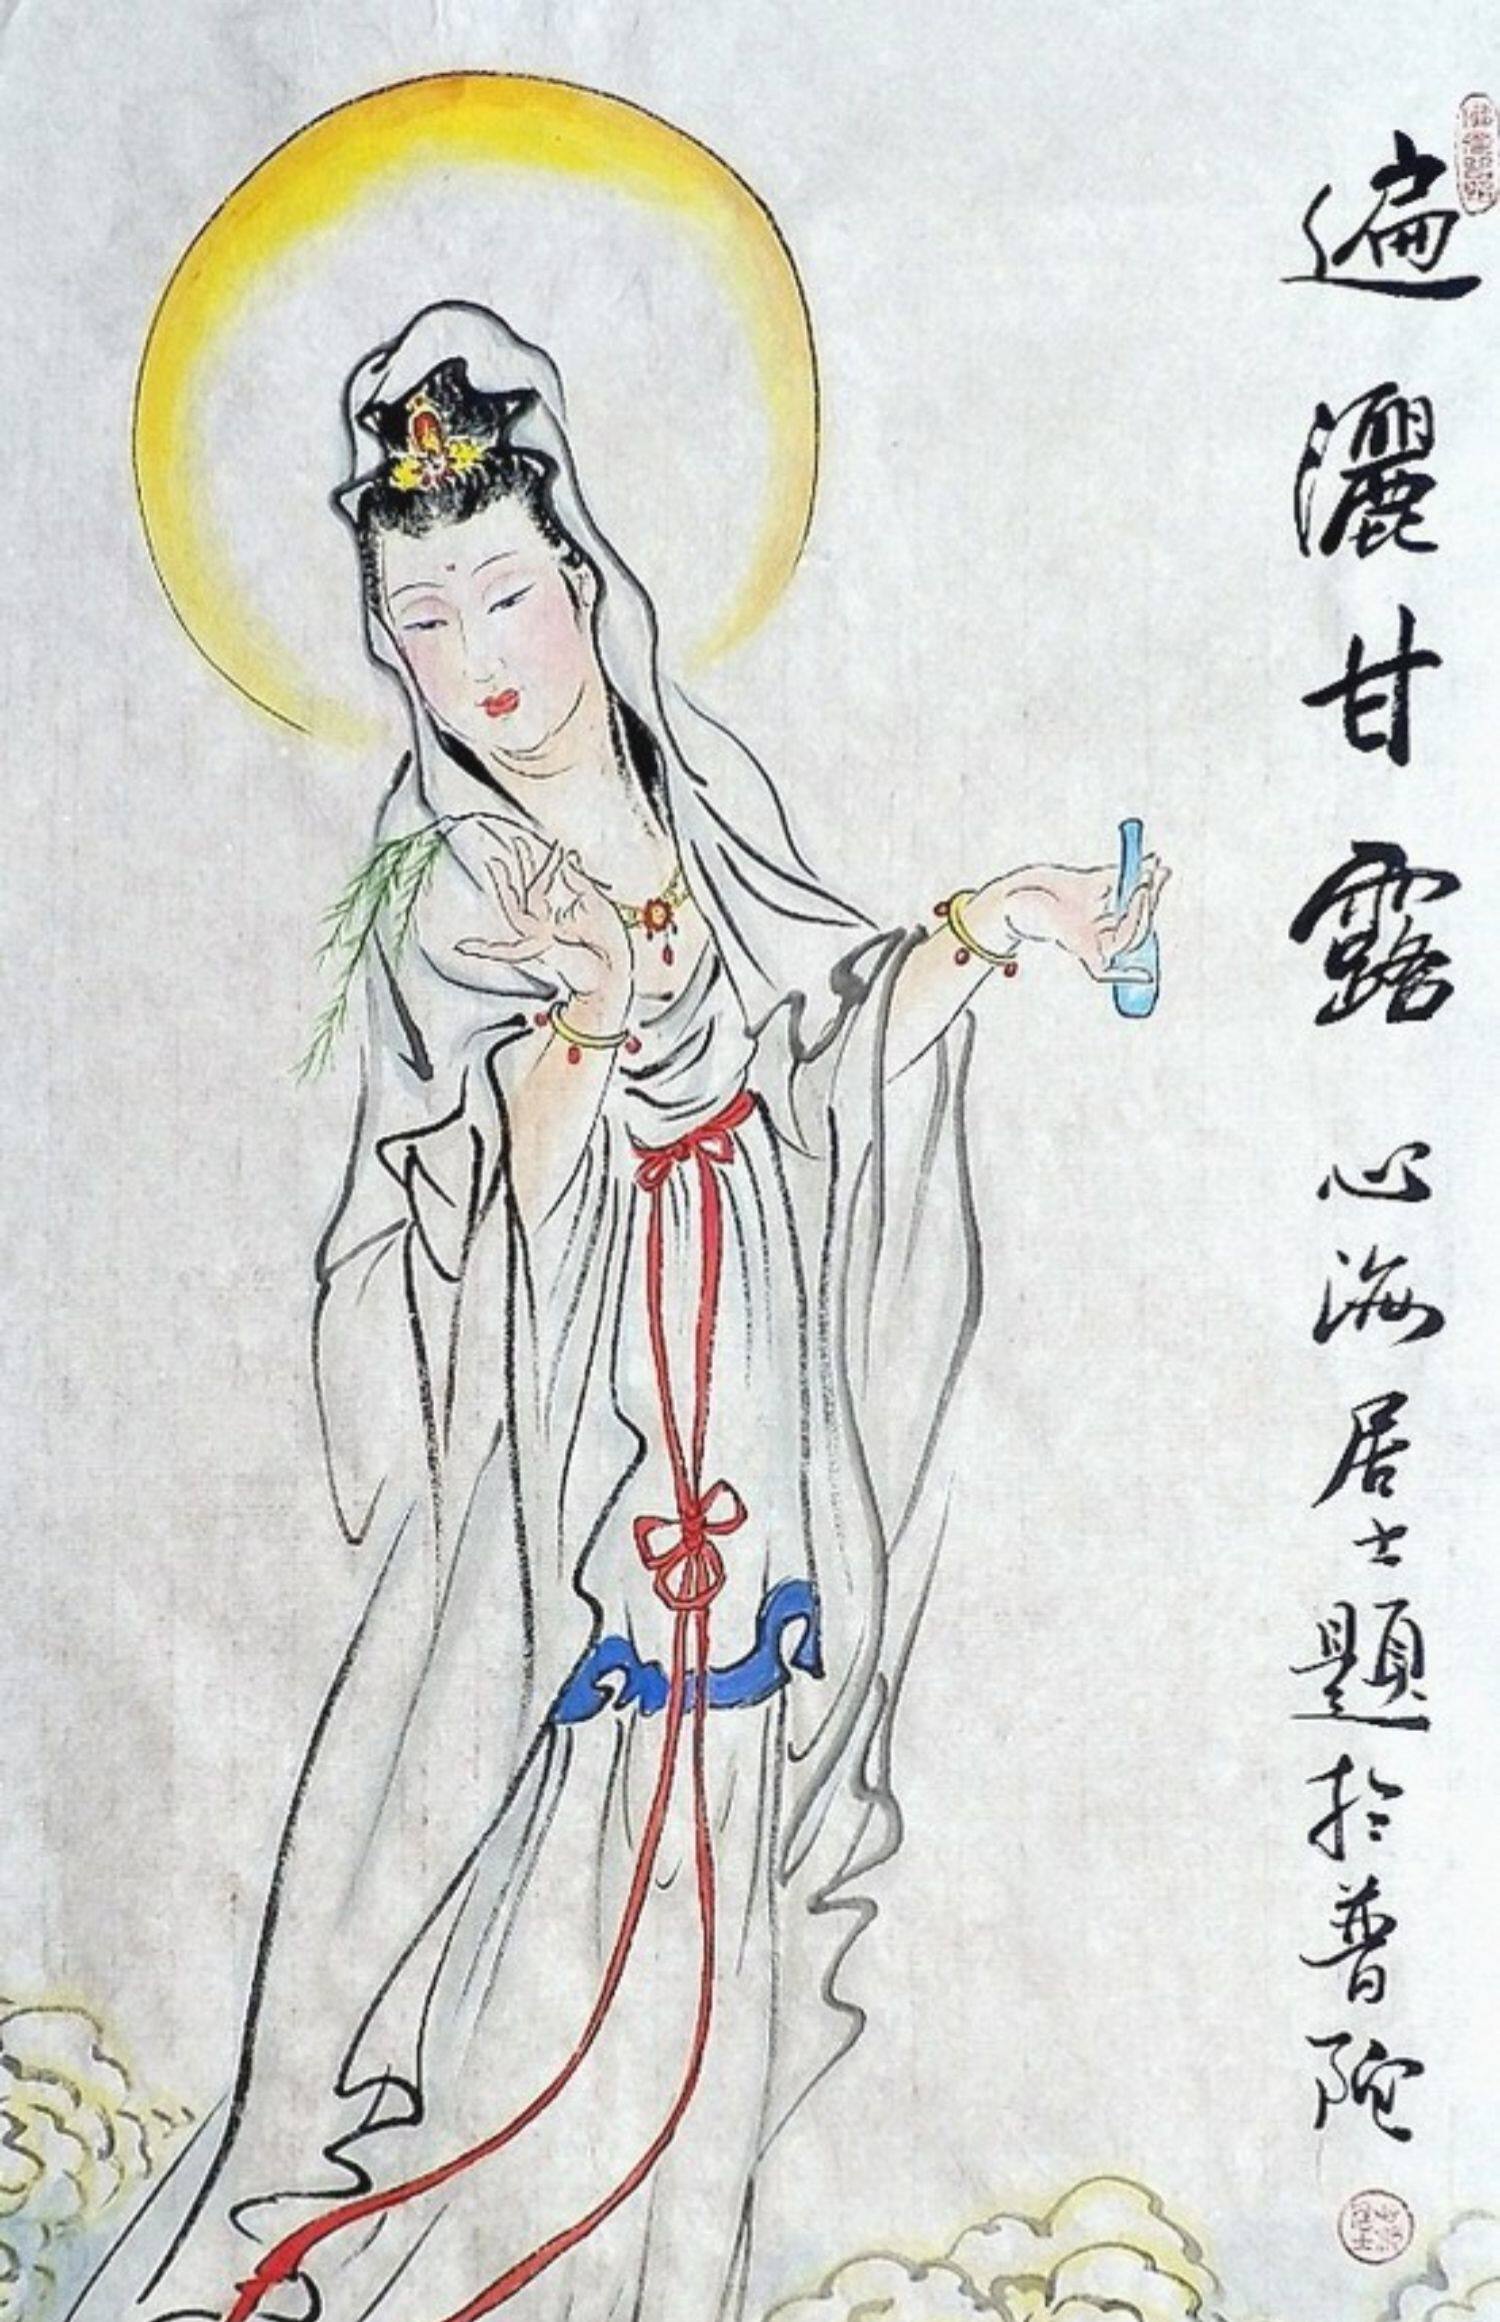 遍灑甘露 心海居士題於普陀